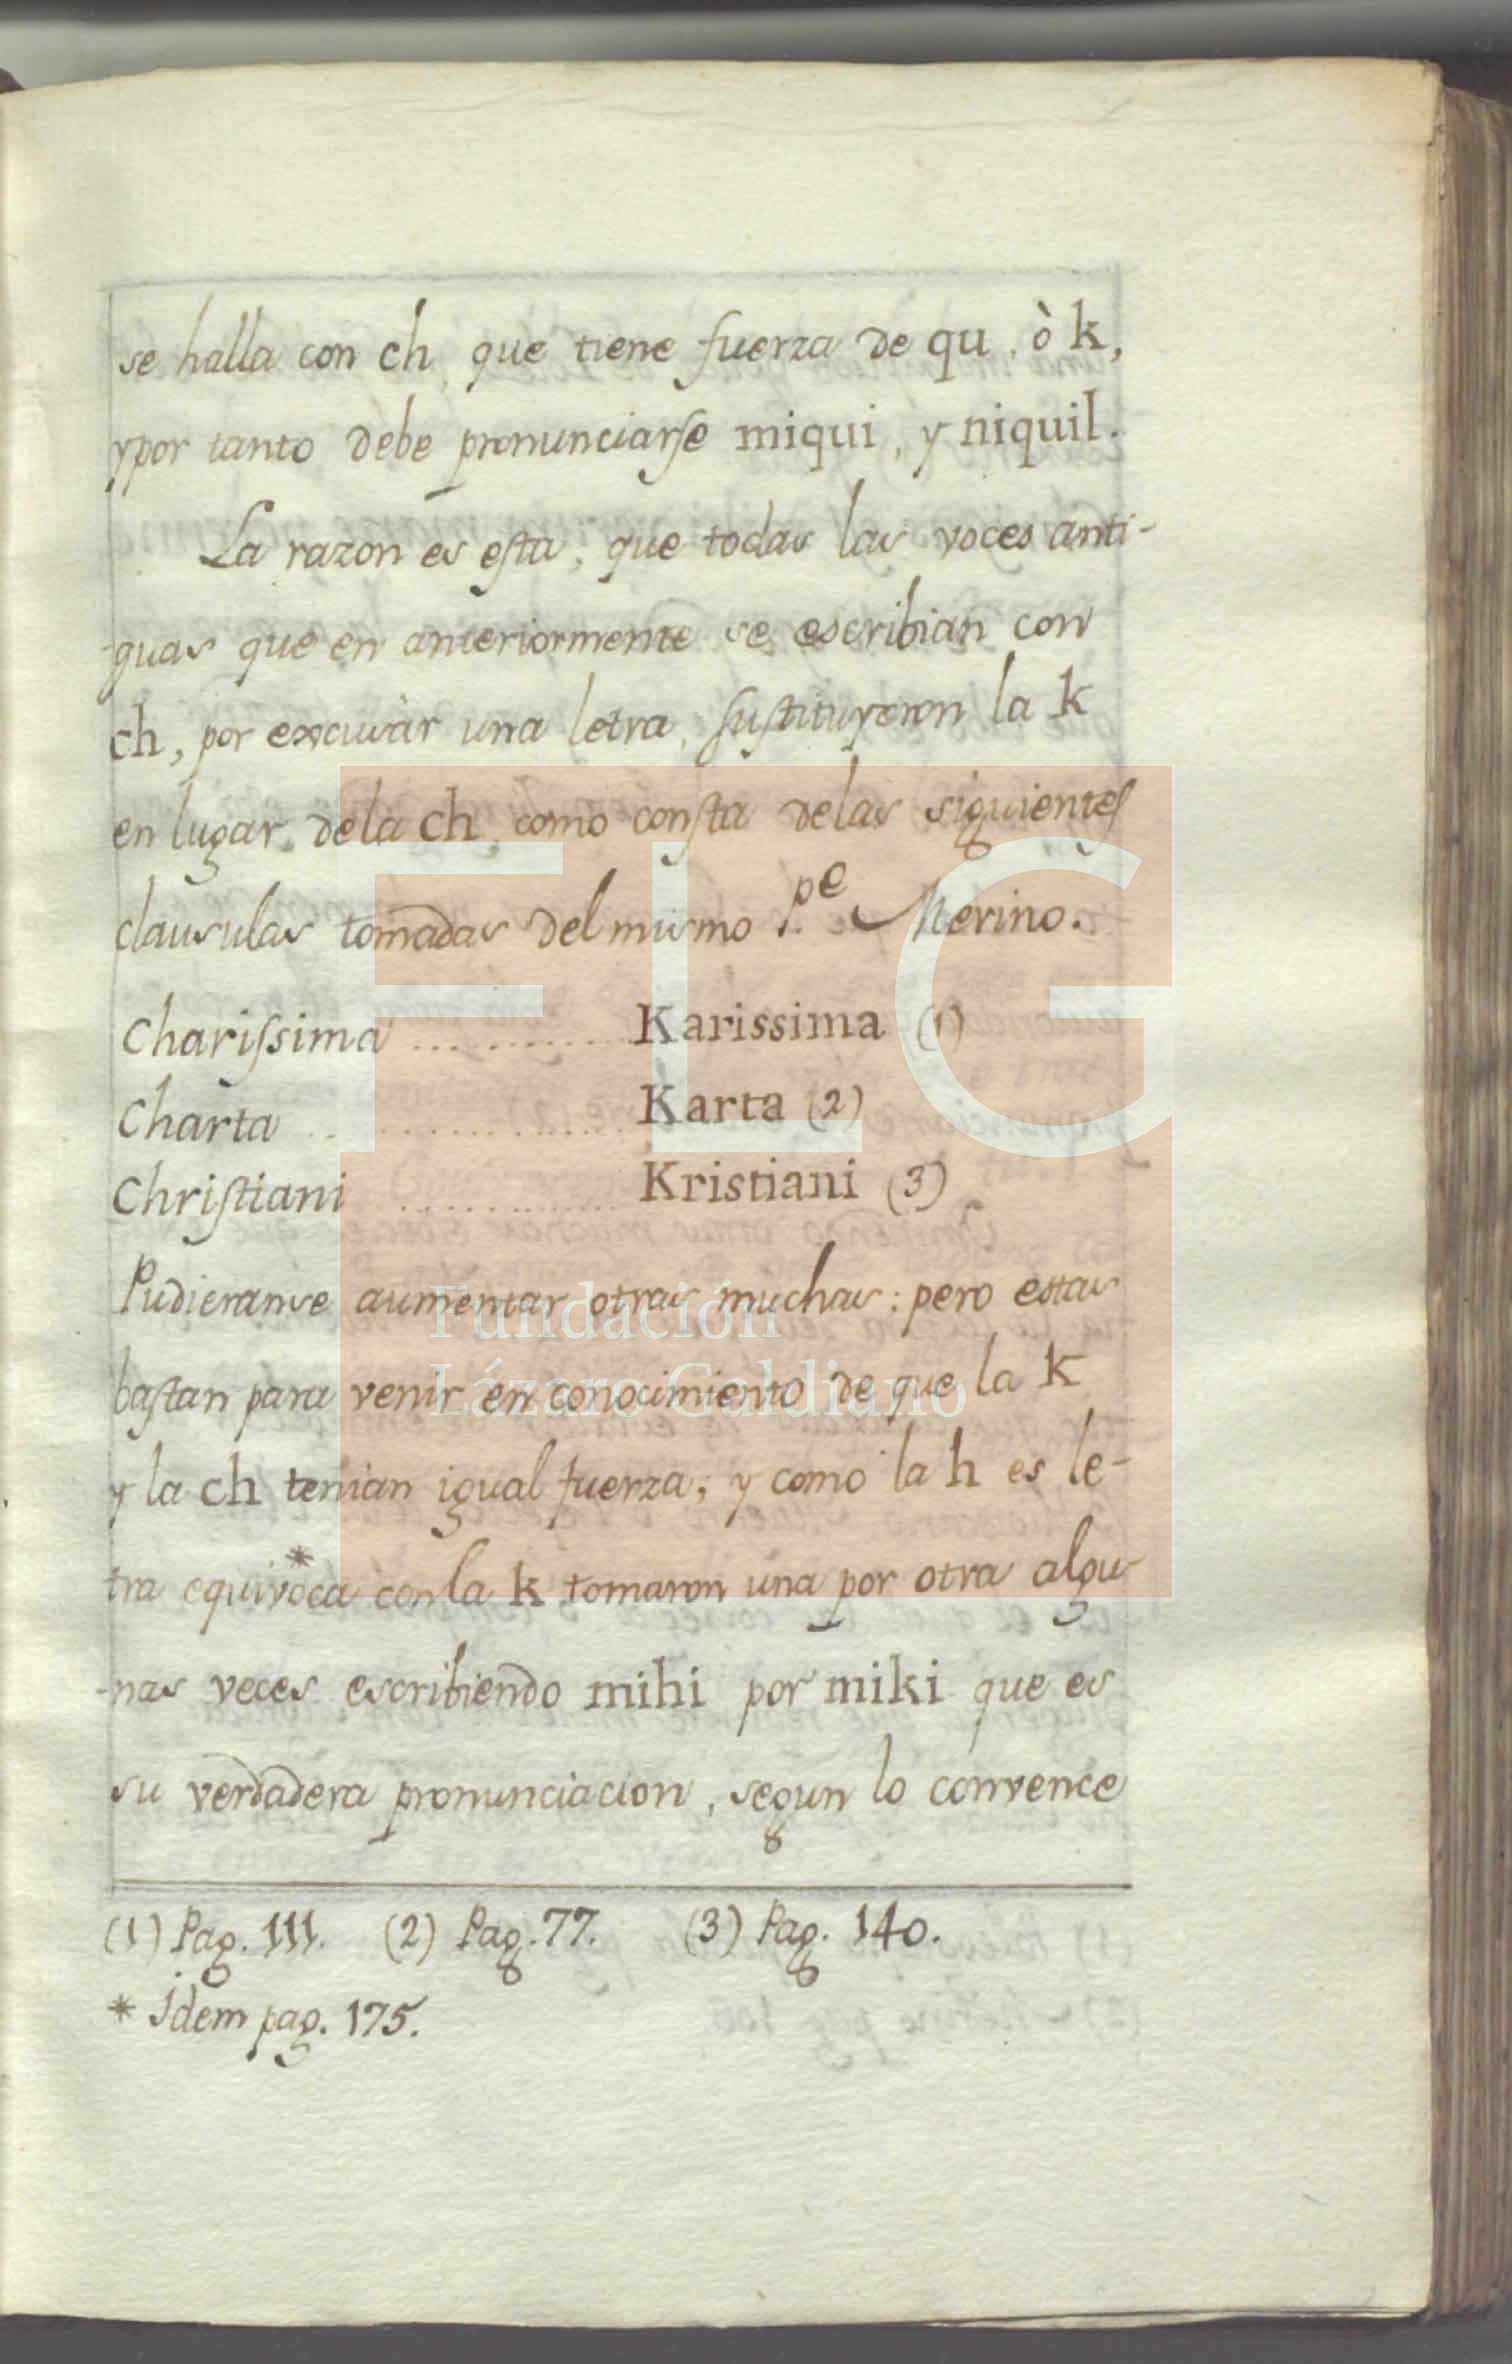 se halla con ch, que tiene fuerza de qu, ò k,
y por tanto debe pronunciarse miqui, y niquil.
La razon es esta, que todas las voces anti-
-guas que en anteriormente se escribian con
ch, por excusàr una letra, sustituyeron la k
en lugar de la ch, como consta de las siguientes
clausulas tomadas del mismo P.e Merino.
Charissima ........... Karissima (1)
Charta ........... Karta (2)
Christiani ........... Kristiani (3)
Pudieranse aumentar otras muchas: pero estas
bastan para venir en conocimiento de que la K
y la ch tenian igual fuerza; y como la h es le-
tra equivoca * con la k tomaron una por otra algu-
-nas veces escribiendo mihi por miki que es
su verdadera pronunciacion, segun lo convence
(1) Pag. 111. (2) Pag. 77. (3) Pag. 140.
* Idem pag. 175.
FLG
Fundación
Lázaro Galdiano